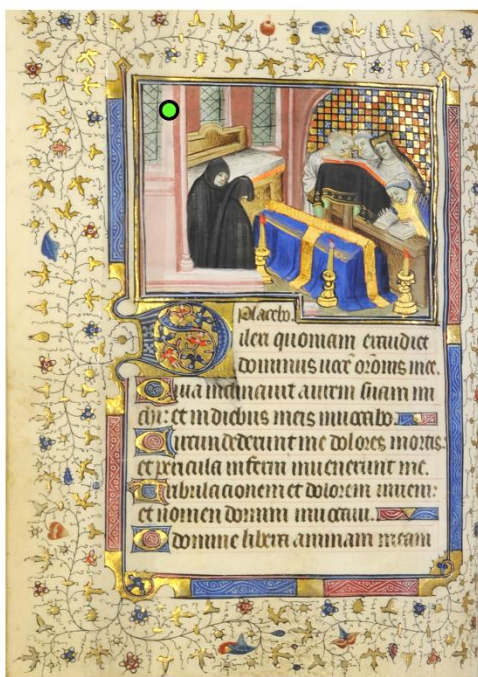 Placebo.
ilexi quoniam exaudiet
dominus uocē orōnis mee.
Quia inclinauit aurem suam mi
chi: et in diebus meis inuocabo.
Circundederunt me dolores mortis
et pericula inferni inuenerunt me.
Tribulacionem et dolorem inueni:
et nomen domini inuocaui.
O domine libera animam meam